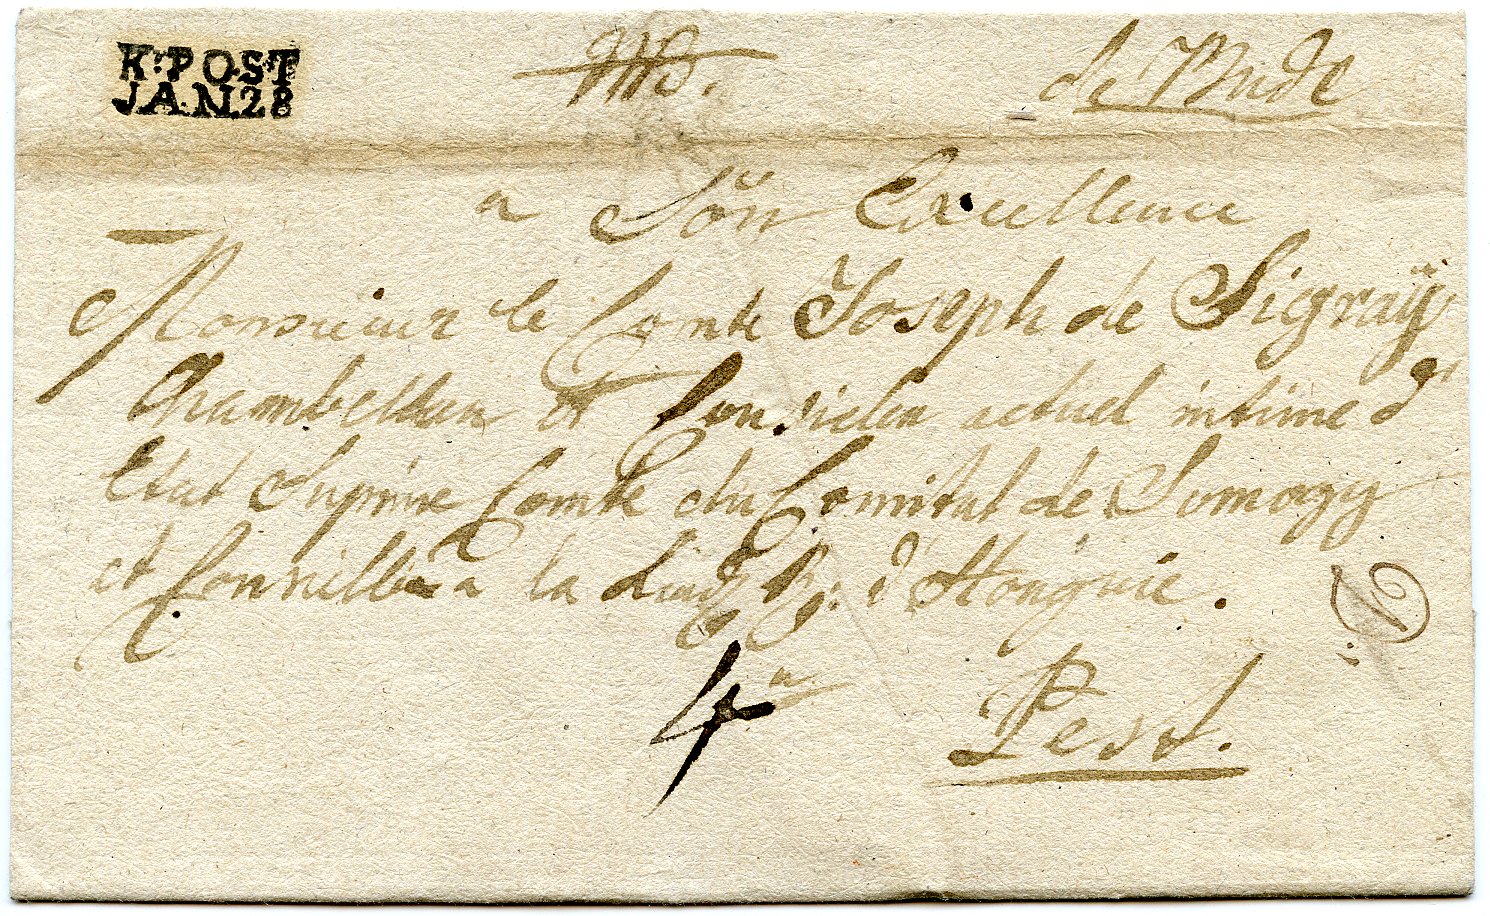 K: POST
JAN.28
de Bude
a Son Excellence
Monsieur le Comte Joseph de Sigraÿ
Chambellan et Consielen actuel intime d'
Etat Suprine Comte du Comitat de Sumogy
et Consillier a la d'Hongrie.
4
a
Pest.